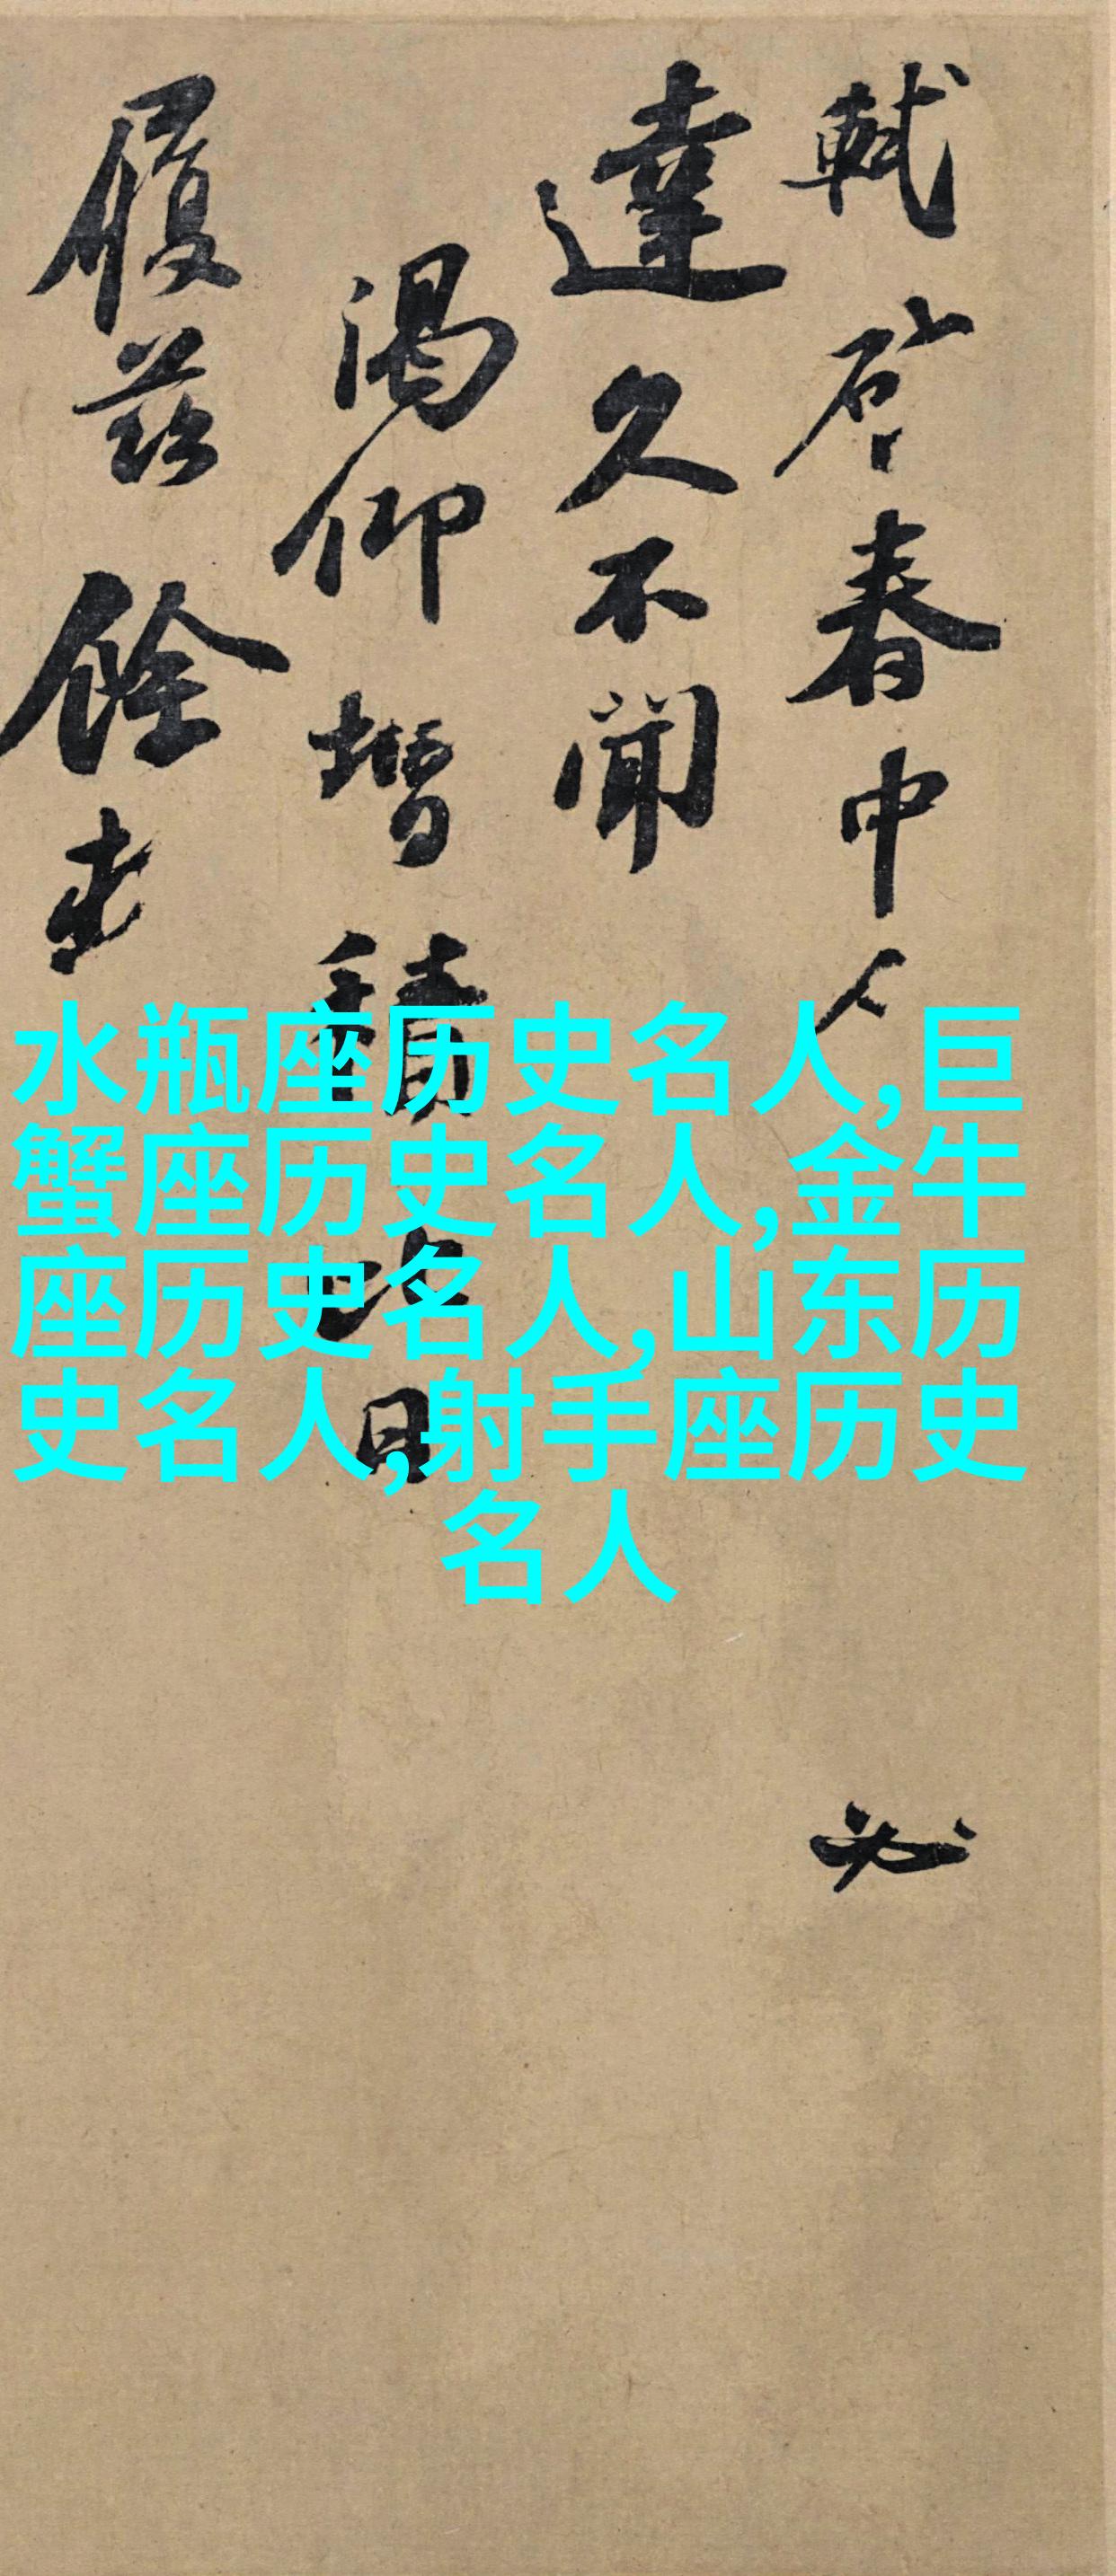 軾啓春中人必
達久不聞
渴仰增積比日
履茲餘
水瓶座历史名人,巨
蟹座历史名人,金牛
座历史名人,山东历
史名人,射手座历史
名人